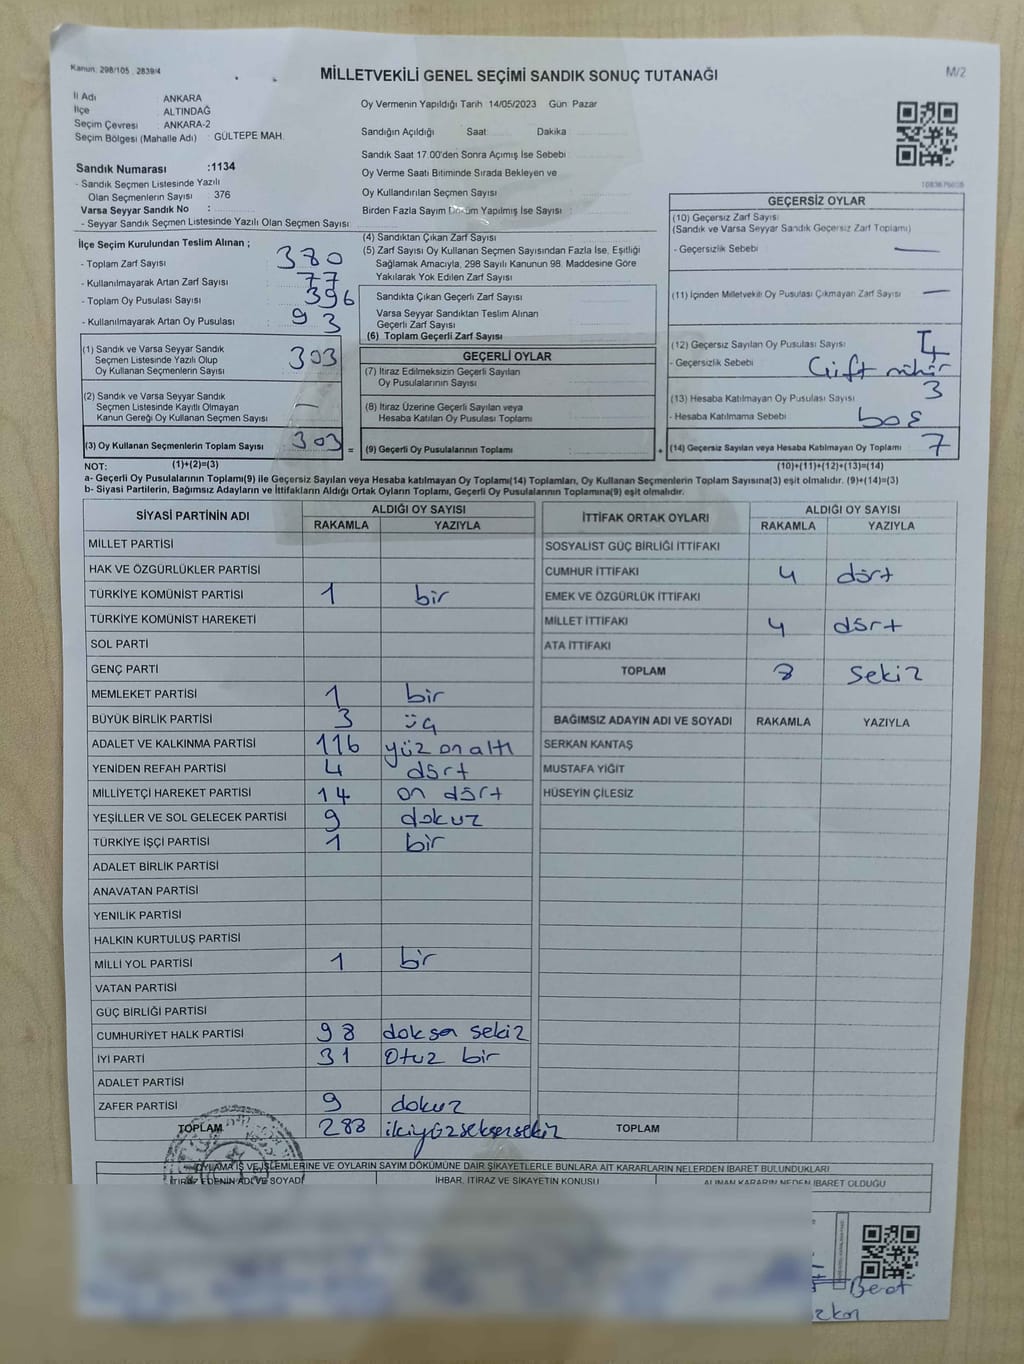 Kanun: 298/105 , 2839/4
MİLLETVEKİLİ GENEL SEÇİMİ SANDIK SONUÇ TUTANAĞI
M/2
İl Adı ANKARA
İlçe ALTINDAĞ
Seçim Çevresi ANKARA-2
Seçim Bölgesi (Mahalle Adı) : GÜLTEPE MAH.
Sandık Numarası :1134
- Sandık Seçmen Listesinde Yazılı
Olan Seçmenlerin Sayısı : 376
Varsa Seyyar Sandık No :
- Seyyar Sandık Seçmen Listesinde Yazılı Olan Seçmen Sayısı:
Oy Vermenin Yapıldığı Tarih 14/05/2023 Gün: Pazar
Sandığın Açıldığı Saat Dakika
Sandık Saat 17:00'den Sonra Açımış İse Sebebi
Oy Verme Saati Bitiminde Sırada Bekleyen ve
Oy Kullandırılan Seçmen Sayısı
Birden Fazla Sayım Döküm Yapılmış İse Sayısı
İlçe Seçim Kurulundan Teslim Alınan ;
- Toplam Zarf Sayısı 380
- Kullanılmayarak Artan Zarf Sayısı : 77
- Toplam Oy Pusulası Sayısı : 396
- Kullanılmayarak Artan Oy Pusulası : 93
(1) Sandık ve Varsa Seyyar Sandık
Seçmen Listesinde Yazılı Olup
Oy Kullanan Seçmenlerin Sayısı 303
(2) Sandık ve Varsa Seyyar Sandık
Seçmen Listesinde Kayıtlı Olmayan
Kanun Gereği Oy Kullanan Seçmen Sayısı —
(3) Oy Kullanan Seçmenlerin Toplam Sayısı 303 =
(4) Sandıktan Çıkan Zarf Sayısı
(5) Zarf Sayısı Oy Kullanan Seçmen Sayısından Fazla İse, Eşitliği
Sağlamak Amacıyla, 298 Sayılı Kanunun 98. Maddesine Göre
Yakılarak Yok Edilen Zarf Sayısı
Sandıkta Çıkan Geçerli Zarf Sayısı
Varsa Seyyar Sandıktan Teslim Alınan
Geçerli Zarf Sayısı
(6) Toplam Geçerli Zarf Sayısı
GEÇERLİ OYLAR
(7) İtiraz Edilmeksizin Geçerli Sayılan
Oy Pusulalarının Sayısı
(8) İtiraz Üzerine Geçerli Sayılan veya
Hesaba Katılan Oy Pusulası Toplamı
(9) Geçerli Oy Pusulalarının Toplamı +
GEÇERSİZ OYLAR
(10) Geçersiz Zarf Sayısı
(Sandık ve Varsa Seyyar Sandık Geçersiz Zarf Toplamı)
- Geçersizlik Sebebi —
(11) İçinden Milletvekili Oy Pusulası Çıkmayan Zarf Sayısı —
(12) Geçersiz Sayılan Oy Pusulası Sayısı
- Geçersizlik Sebebi Çift mühür
(13) Hesaba Katılmayan Oy Pusulası Sayısı 3
- Hesaba Katılmama Sebebi boş
(14) Geçersiz Sayılan veya Hesaba Katılmayan Oy Toplamı 7
NOT: (1)+(2)=(3) (10)+(11)+(12)+(13)=(14)
a- Geçerli Oy Pusulalarının Toplamı(9) ile Geçersiz Sayılan veya Hesaba katılmayan Oy Toplamı(14) Toplamları, Oy Kullanan Seçmenlerin Toplam Sayısına(3) eşit olmalıdır. (9)+(14)=(3)
b- Siyasi Partilerin, Bağımsız Adayların ve İttifakların Aldığı Ortak Oyların Toplamı, Geçerli Oy Pusulalarının Toplamına(9) eşit olmalıdır.
SİYASİ PARTİNİN ADI ALDIĞI OY SAYISI
RAKAMLA YAZIYLA
MİLLET PARTİSİ
HAK VE ÖZGÜRLÜKLER PARTİSİ
TÜRKİYE KOMÜNİST PARTİSİ 1 bir
TÜRKİYE KOMÜNİST HAREKETİ
SOL PARTİ
GENÇ PARTİ
MEMLEKET PARTİSİ 1 bir
BÜYÜK BİRLİK PARTİSİ 3 üç
ADALET VE KALKINMA PARTİSİ 116 yüz on altı
YENİDEN REFAH PARTİSİ 4 dört
MİLLİYETÇİ HAREKET PARTİSİ 14 on dört
YEŞİLLER VE SOL GELECEK PARTİSİ 9 dokuz
TÜRKİYE İŞÇİ PARTİSİ 1 bir
ADALET BİRLİK PARTİSİ
ANAVATAN PARTİSİ
YENİLİK PARTİSİ
HALKIN KURTULUŞ PARTİSİ
MİLLİ YOL PARTİSİ 1 bir
VATAN PARTİSİ
GÜÇ BİRLİĞİ PARTİSİ
CUMHURİYET HALK PARTİSİ 98 doksan sekiz
İYİ PARTİ 31 Otuz bir
ADALET PARTİSİ
ZAFER PARTİSİ 9 dokuz
TOPLAM 288 ikiyüzseksensekiz
İTTİFAK ORTAK OYLARI ALDIĞI OY SAYISI
RAKAMLA YAZIYLA
SOSYALİST GÜÇ BİRLİĞİ İTTİFAKI
CUMHUR İTTİFAKI 4 dört
EMEK VE ÖZGÜRLÜK İTTİFAKI
MİLLET İTTİFAKI 4 dört
ATA İTTİFAKI
TOPLAM 8 sekiz
BAĞIMSIZ ADAYIN ADI VE SOYADI RAKAMLA YAZIYLA
SERKAN KANTAŞ
MUSTAFA YİĞİT
HÜSEYİN ÇİLESİZ
TOPLAM
OYLAMA İŞ VE İŞLEMLERİNE VE OYLARIN SAYIM DÖKÜMÜNE DAİR ŞİKAYETLERLE BUNLARA AİT KARARLARIN NELERDEN İBARET BULUNDUKLARI
İTİRAZ EDENİN ADI VE SOYADI İHBAR, İTİRAZ VE ŞİKAYETİN KONUSU ALINAN KARARIN NEDEN İBARET OLDUĞU